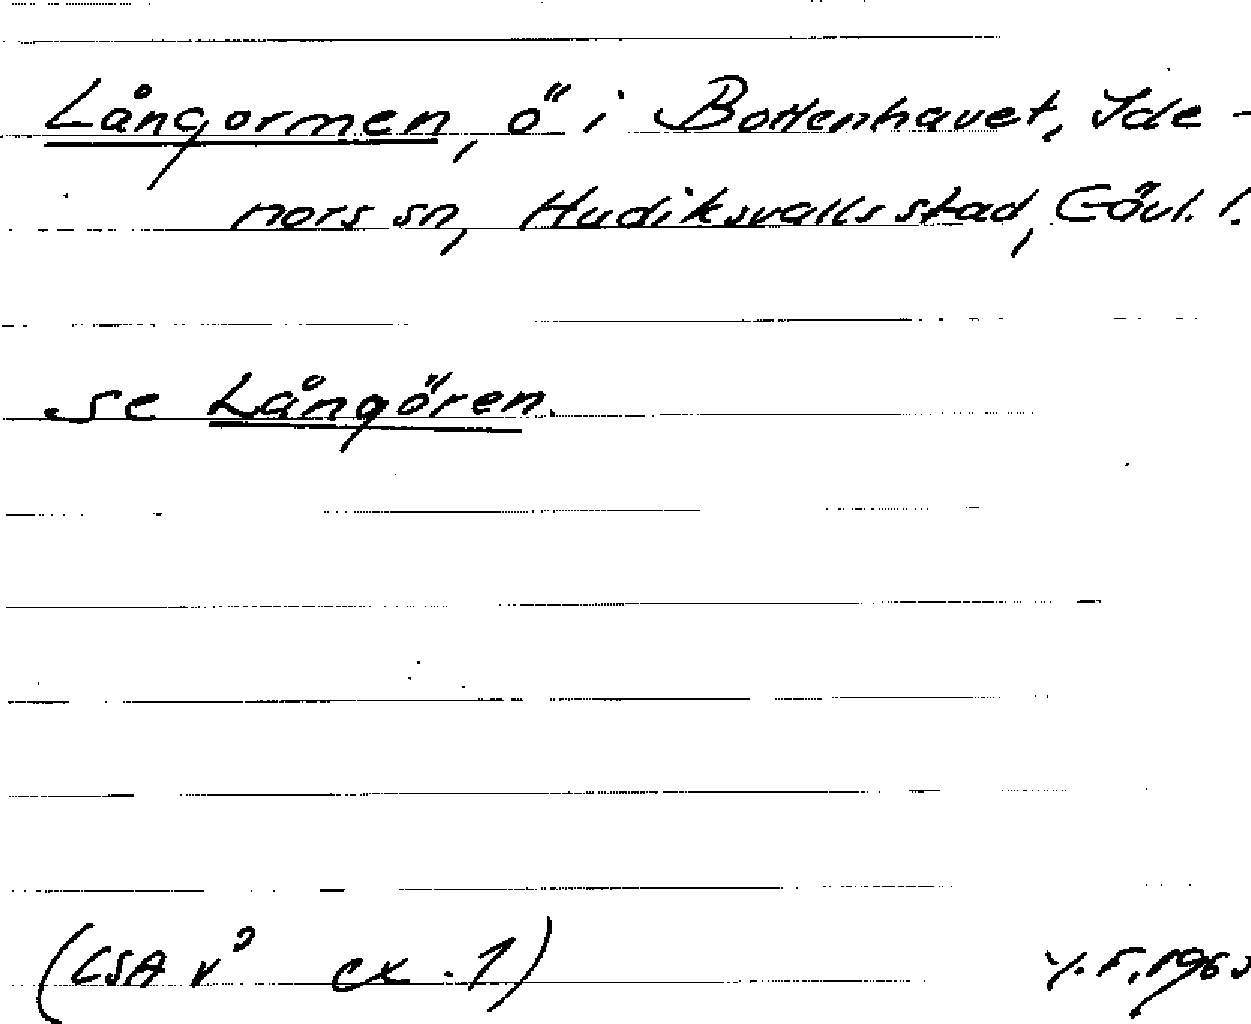 Långormen, ö i Bottenhavet, Ide-
nors sn, Hudiksvalls stad, Gävl. l.
se Långören.
(LSA v² ex. 1) Y. F. 1960